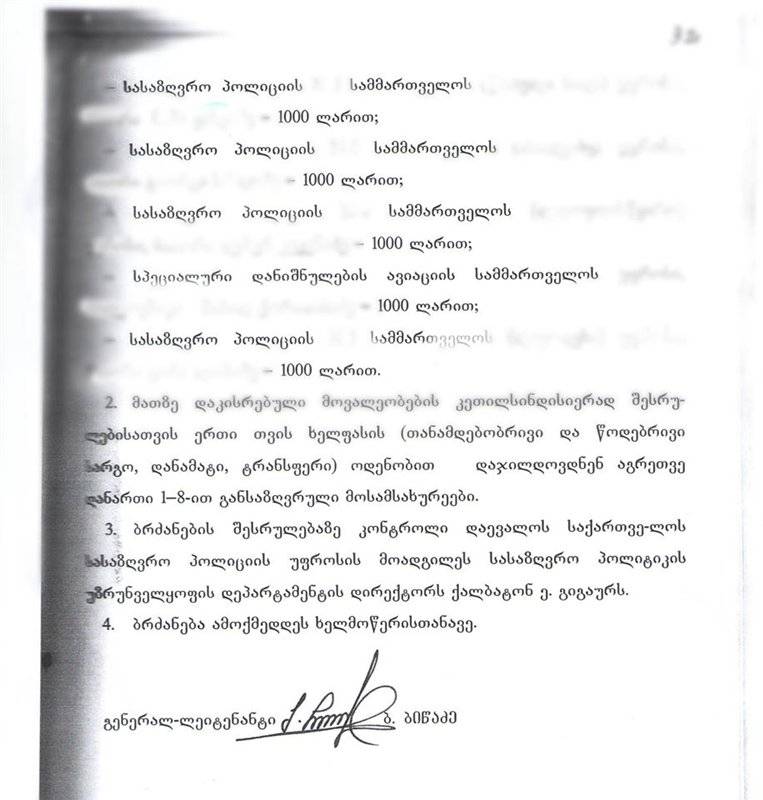 32
– სასაზღვრო პოლიციის სამმართველოს
– 1000 ლარით;
– სასაზღვრო პოლიციის სამმართველოს
– 1000 ლარით;
– სასაზღვრო პოლიციის სამმართველოს
– 1000 ლარით;
– სპეციალური დანიშნულების ავიაციის სამმართველოს
– 1000 ლარით;
– სასაზღვრო პოლიციის სამმართველოს
– 1000 ლარით.
2. მათზე დაკისრებული მოვალეობების კეთილსინდისიერად შესრუ-
ლებისათვის ერთი თვის ხელფასის (თანამდებობრივი და წოდებრივი
სარგო, დანამატი, ტრანსფერი) ოდენობით დაჯილდოვდნენ აგრეთვე
დანართი 1–8-ით განსაზღვრული მოსამსახურეები.
3. ბრძანების შესრულებაზე კონტროლი დაევალოს საქართვე-ლოს
სასაზღვრო პოლიციის უფროსის მოადგილეს სასაზღვრო პოლიტიკის
უზრუნველყოფის დეპარტამენტის დირექტორს ქალბატონ ე. გიგაურს.
4. ბრძანება ამოქმედდეს ხელმოწერისთანავე.
გენერალ-ლეიტენანტი ბ. ბიწაძე